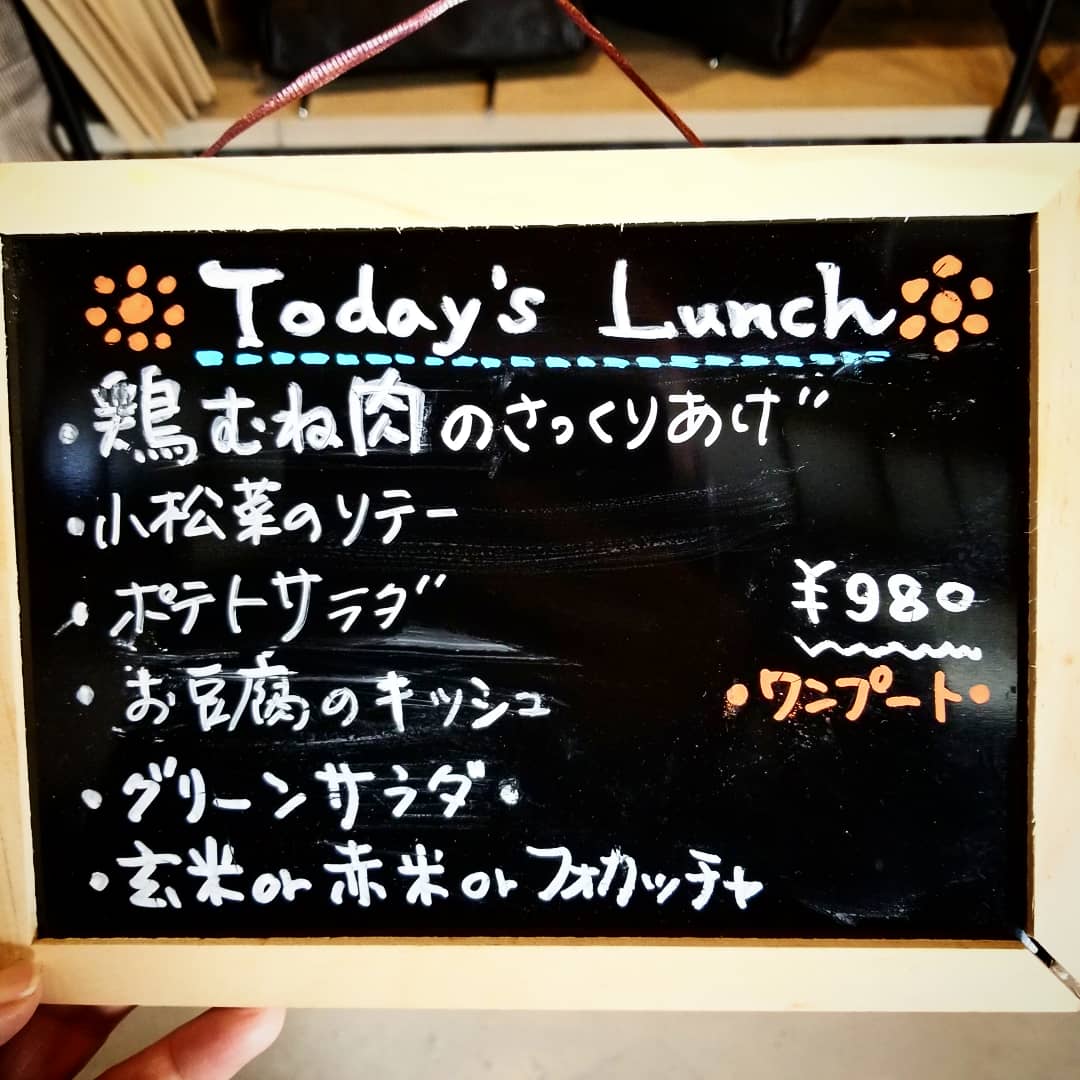 Today's Lunch
・鶏むね肉のさっくりあげ
・小松菜のソテー
・ポテトサラダ
¥980
・お豆腐のキッシュ
・ワンプレート・
・グリーンサラダ・
・玄米or赤米orフォカッチャ